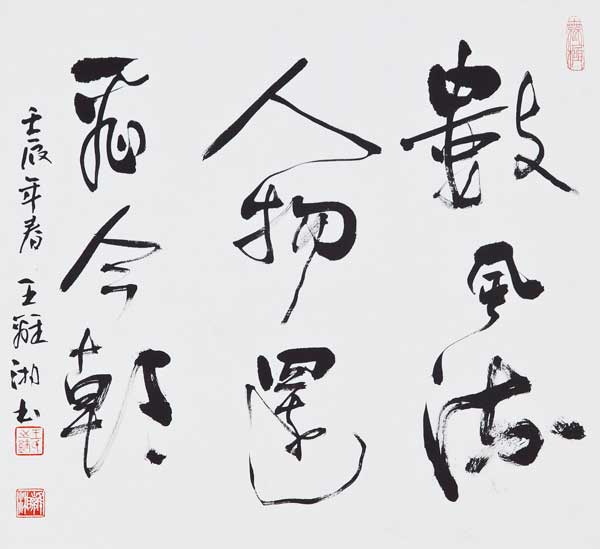 數風流
人物還
看今朝
壬辰年春 王湘书